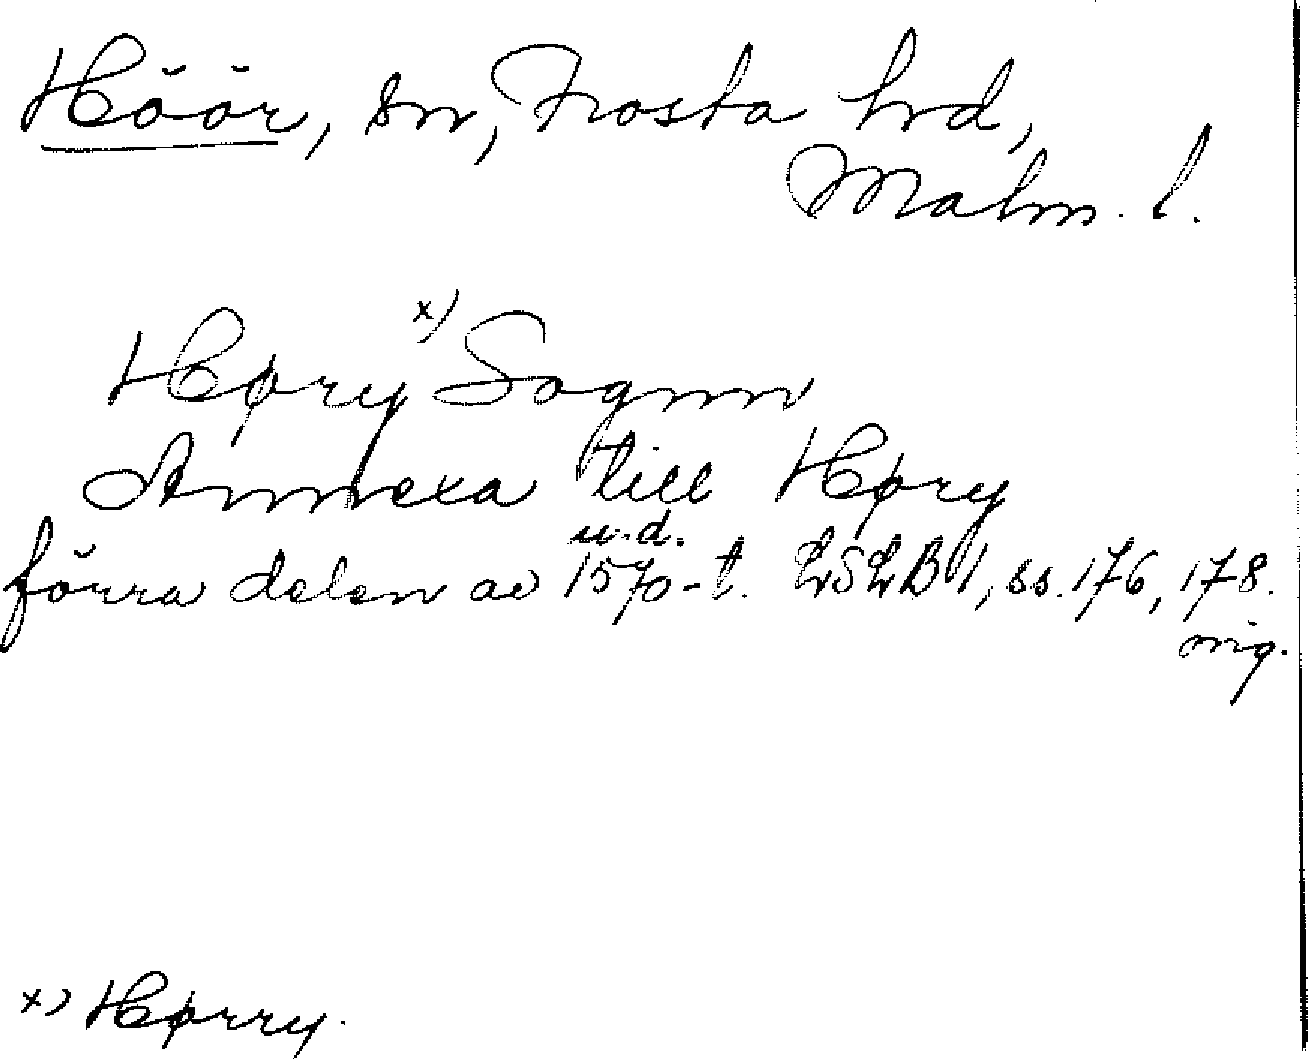 Höör, sn, Frosta hrd,
Malm. l.
Høry x) Sognn
Annexa till Høry
u.d.
förra delen av 1570-t. LSLB I, ss. 176, 178.
x) Hørry.